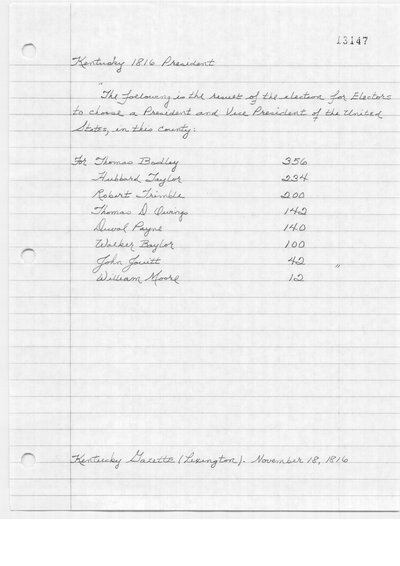 13147
Kentucky 1816 President
"The following is the result of the election for Electors
to choose a President and Vice President of the United
States, in this County:
For Thomas Bodley 356
Hubbard Taylor 234
Robert Trimble 200
Thomas D. Owings 142
Duval Payne 140
Walker Baylor 100
John Jouitt 42 "
William Moore 12
Kentucky Gazette (Lexington). November 18, 1816